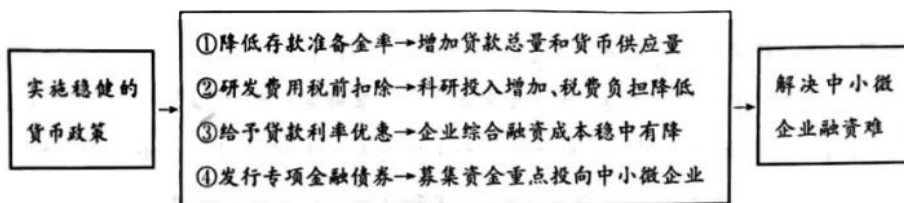 实施稳健的
货币政策
①降低存款准备金率→增加贷款总量和货币供应量
②研发费用税前扣除→科研投入增加、税费负担降低
③给予贷款利率优惠→企业综合融资成本稳中有降
④发行专项金融债券→募集资金重点投向中小微企业
解决中小微
企业融资难